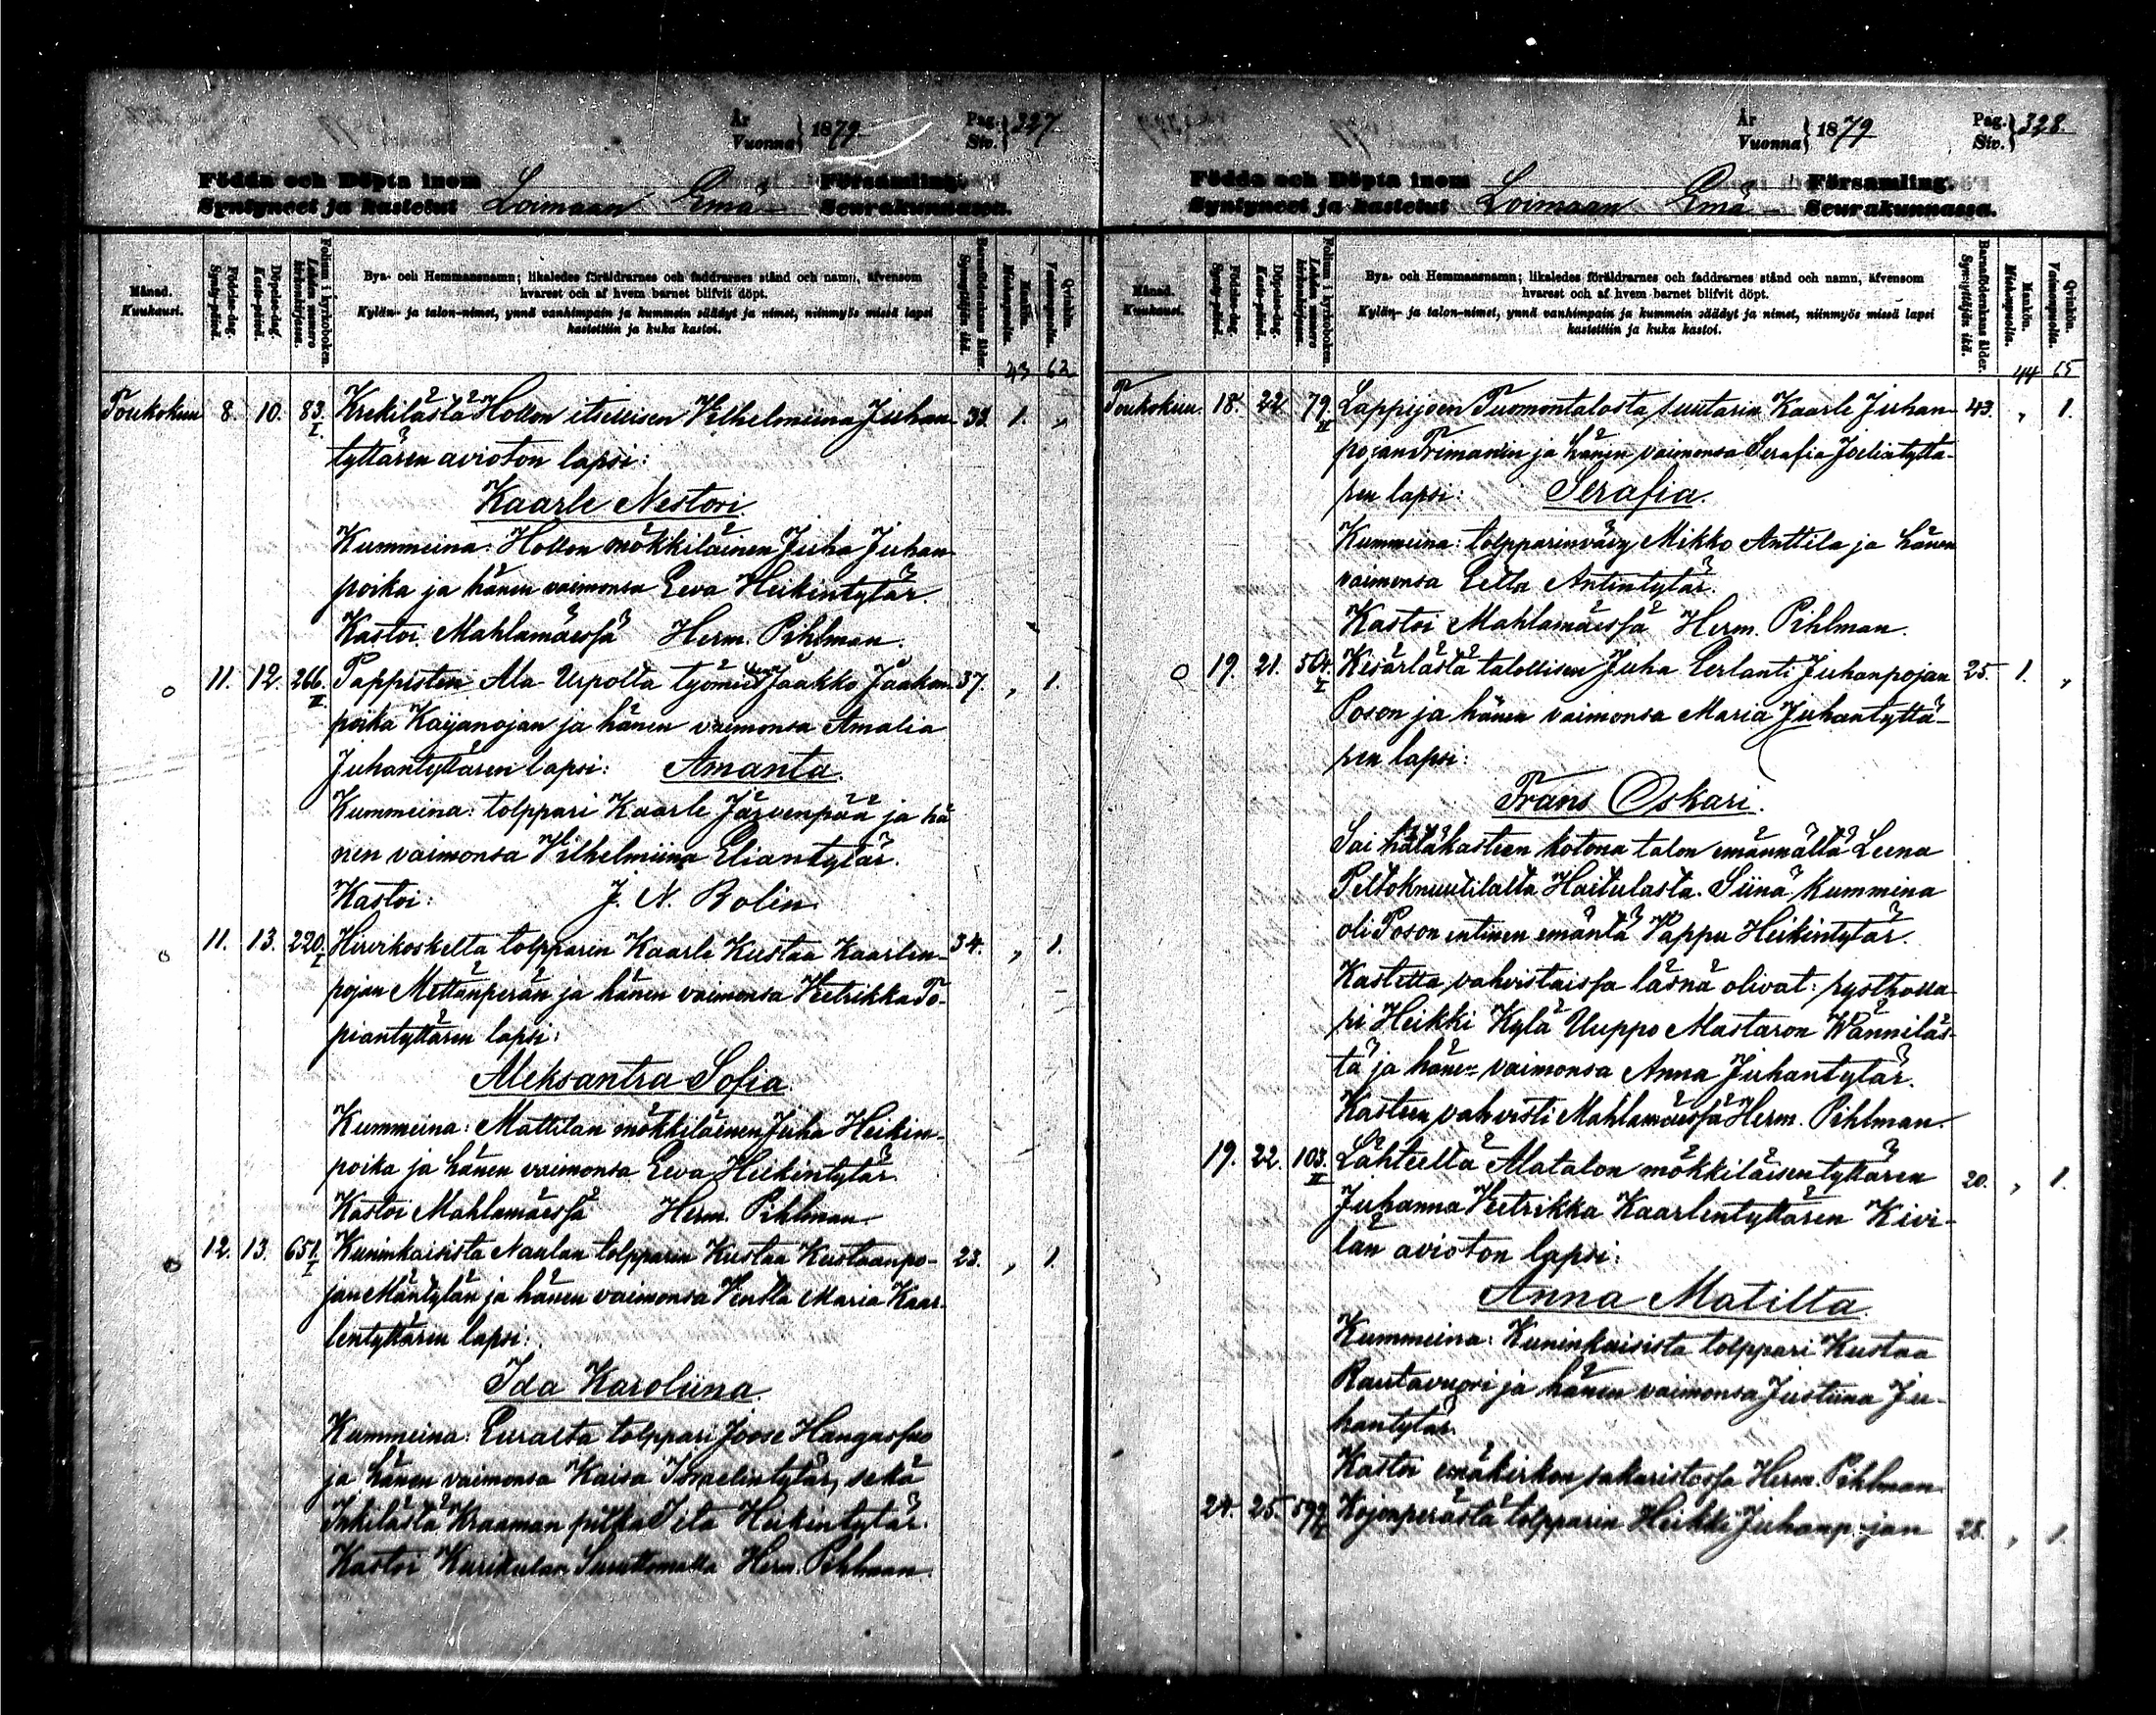 År
Vuonna } 1879
Pag.
Siv. } 327.
Födda och Döpta inom
Syntyneet ja kastetut Loimaan Emä- Församling.
Seurakunnassa.
Månad.
Kuukausi.
Födelse-dag.
Synty-päivä.
Döpelse-dag.
Kaste-päivä.
Folium i kyrkoboken.
Lehden numero kirkonkirjassa.
Bya- och Hemmansnamn; likaledes föräldrarnes och faddrarnes stånd och namn, äfvensom
hvarest och af hvem barnet blifvit döpt.
Kylän- ja talon-nimet, ynnä vanhimpain ja kummein säädyt ja nimet, niinmyös missä lapsi
kastettiin ja kuka kastoi.
Barnaföderskans ålder.
Synnyttäjän ikä.
Mankön.
Miehenpuolta.
Qvinkön.
Vaimonpuolta.
43 62
Toukokuu 8. 10. 83. I. Krekilästä Hollon itsellisen Vilhelmiina Juhan- 1. „
tyttären avioton lapsi:
Kaarle Nestori.
Kummeina: Hollon mökkiläinen Juha Juhan
poika ja hänen vaimonsa Eeva Heikintytär.
Kastoi Mahlamäessä Herm. Pihlman.
11. 12. 266. II. Pappisten Ala Urpolta työmies Jaakko Jaakon- 37. „ 1.
poika Kaijanojan ja hänen vaimonsa Amalia
Juhantyttären lapsi: Amanta.
Kummeina: tolppari Kaarle Järvenpää ja hä
nen vaimonsa Vilhelmiina Eliantytär.
Kastoi: J. N. Rolin.
11. 13. 220. I. Hirvikoskelta tolpparin Kaarle Kustaa Kaarlen- 34. „ 1.
pojan Mettänperän ja hänen vaimonsa Vretrikka To-
piantyttären lapsi:
Aleksantra Sofia.
Kummeina: Mattilan mökkiläinen Juha Heikin-
poika ja hänen vaimonsa Eeva Heikintytär.
Kastoi Mahlamäessä Herm. Pihlman.
12. 13. 651. I. Kuninkaisista Naulan tolpparin Kustaa Kustaanpo- 23. „ 1.
jan Mäntylän ja hänen vaimonsa Maria Kaar-
lentyttären lapsi:
Ida Karoliina.
Kummeina: Euralta tolppari Joose Hangassuo
ja hänen vaimonsa Kaisa Israelintytär, sekä
Inkilästä Kraaman piika Ita Heikintytär.
Kastoi Kurikulan Herm. Pihlman.
År
Vuonna } 1879
Pag.
Siv. } 328.
Födda och Döpta inom
Syntyneet ja kastetut Loimaan Emä- Församling.
Seurakunnassa.
Månad.
Kuukausi.
Födelse-dag.
Synty-päivä.
Döpelse-dag.
Kaste-päivä.
Folium i kyrkoboken.
Lehden numero kirkonkirjassa.
Bya- och Hemmansnamn; likaledes föräldrarnes och faddrarnes stånd och namn, äfvensom
hvarest och af hvem barnet blifvit döpt.
Kylän- ja talon-nimet, ynnä vanhimpain ja kummein säädyt ja nimet, niinmyös missä lapsi
kastettiin ja kuka kastoi.
Barnaföderskans ålder.
Synnyttäjän ikä.
Mankön.
Miehenpuolta.
Qvinkön.
Vaimonpuolta.
44 65
Toukokuu. 18. 22. 79. II Lappijoen Tuomontalosta suutarin Kaarle Juhan 43. „ 1.
pojan Fremanin ja hänen vaimonsa Serafia Joeliatyttä-
ren lapsi: Serafia.
Kummeina: tolpparinvävy Mikko Anttila ja hänen
vaimonsa Eella Antintytär.
Kastoi Mahlamäessä Herm. Pihlman.
19. 21. 504. I. Kisärlästä talollisen Juha Eerlanti Juhanpojan 25. 1. „
Poson ja hänen vaimonsa Maria Juhantyttä-
ren lapsi:
Frans Oskari.
Sai hätäkasteen kotona talon emännältä Leena
Peltoknuutilalta Haitulasta. Siinä kummina
oli Poson entinen emäntä Vappu Heikintytär.
Kastetta vahvistaissa läsnä olivat: rustholla-
ri Heikki Kylä Uuppo Alastaron Wänniläs-
tä ja hänen vaimonsa Anna Juhantytär.
Kasteen vahvisti Mahlamäessä Herm. Pihlman.
19. 22. 103. II Lähteeltä Alatalon mökkiläisentyttären 20. „ 1.
Juhanna Vretrikka Kaarlentyttären Kivi-
län avioton lapsi:
Anna Matilta.
Kummeina: Kuninkaisista tolppari Kustaa
Rautavuori ja hänen vaimonsa Justiina Ju-
hantytär.
Kastoi emäkirkon sakaristossa Herm. Pihlman.
24. 25. 599. Kojonperästä tolpparin Heikki Juhanpojan 28. „ 1.